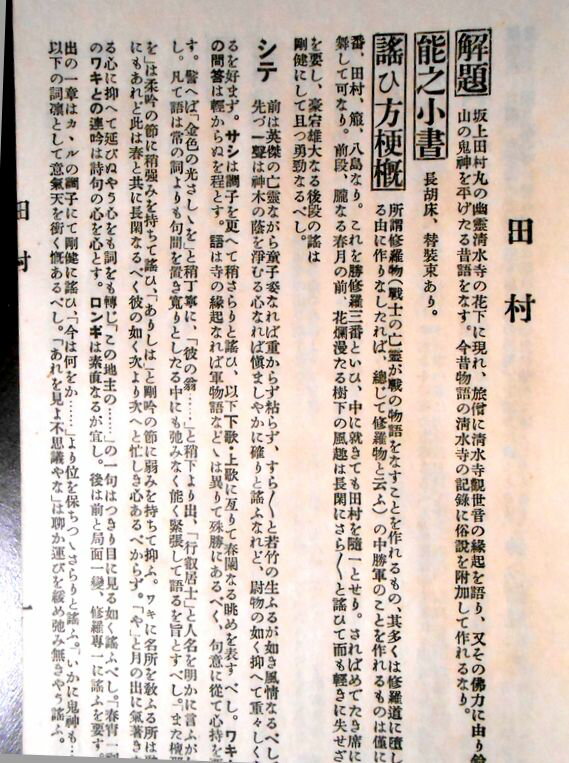 田村
解題
坂上田村丸の幽靈清水寺の花下に現れ、旅僧に清水寺觀世音の緣起を語り、又その佛力に由り鈴
山の鬼神を平げたる昔語をなす。今昔物語の清水寺の記錄に俗說を附加して作れるなり。
能之小書
長胡床、替裝束あり。
謠ひ方梗槪
所謂修羅物(戰士の亡靈が戰の物語をなすことを作れるもの、其多くは修羅道に墮し
る由に作りなしたれば、總じて修羅物と云ふ)の中勝軍のことを作れるものは僅に
番、田村、箙、八島なり。これを勝修羅三番といひ、中に就きても田村を隨一とせり。さればめでたき席に
舞して可なり。前段、朧なる春月の前、花爛漫たる樹下の風趣は長閑にさら〱と謠ひて而も輕きに失せざ
を要し、豪宕雄大なる後段の謠は
剛健にして且つ勇勁なるべし。
シテ
前は英傑の亡靈ながら童子姿なれば重からず粘らず、すら〱と若竹の生ふるが如き風情なるべし
先づ一聲は神木の蔭を淨むる心なれば愼ましやかに確りと謠ふなれど、尉物の如く抑へて重々しく
るを好まず。サシは調子を更へて稍さらりと謠ひ、以下下歌・上歌に亙りて春闌なる眺めを表すべし。ワキ・
の問答は輕からぬを程とす。語は寺の緣起なれば軍物語などゝは異りて殊勝にあるべく、句意に從て心持を
す。譬へば「金色の光さしゝを」と稍丁寧に、「彼の翁……」と稍下より出、「行叡居士」と人名を明かに言ふが
し。凡て語は常の詞よりも句間を置き寬りとしたる中にも弛みなく能く緊張して語るを旨とすべし。また檀那
を」は柔吟の節に稍强みを持ちて謠ひ、「ありしは」と剛吟の節に弱みを持ちて抑ふ。ワキに名所を敎ふる所は
にもあれど此は春と共に長閑なるべく彼の如く次より次へと忙しき心あるべからず。「や」と月の出に氣著き
る心に抑へて延びぬやう心をも詞をも轉じ「この地主の……」の一句はつきり目に見る如く謠ふべし。「春宵一刻
のワキとの連吟は詩句の心を心とす。ロンギは素直なるが宜し。後は前と局面一變、修羅專一に謠ふを要す。
出の一章はカヽルの調子にて剛健に謠ひ、「今は何をか……」より位を保ちつゝさらりと謠ふ。「いかに鬼神も…
以下の詞凛として意氣天を衝く慨あるべし。「あれを見よ不思議やな」は聊か運びを緩め弛み無きやう謠ふ。
田村
一